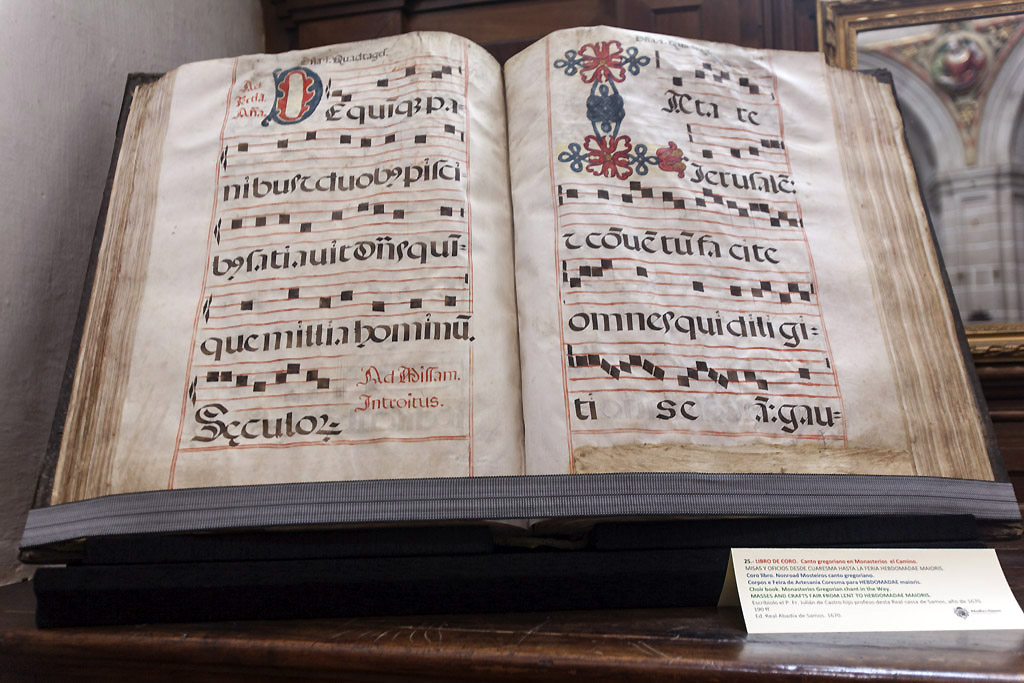 Quadrages.
Ad
Bñda
Aña.
De quinqꝫ pa-
nibus ⁊ duobꝰ pisci-
bꝰ satiauit dñs qui-
que millia hominū.
Ad Missam.
Seculoꝝ.
Introitus.
Læta re
Ierusalē:
⁊ cōuētū fa cite
omnes qui diligi-
ti s e ā: gau-
25.- LIBRO DE CORO. Canto gregoriano en Monasterios el Camino.
MISAS Y OFICIOS DESDE CUARESMA HASTA LA FERIA HEBDOMADAE MAIORIS.
Coro libro. Nonroad Mosteiros canto gregoriano.
Corpos e Feira de Artesanía Coresma para HEBDOMADAE maioris.
Choir book. Monasteries Gregorian chant in the Way.
MASSES AND CRAFTS FAIR FROM LENT TO HEBDOMADAE MAIORIS.
Escribiolo el P. Fr. Julián de Castro hijo profeso desta Real cassa de Samos, año de 1670.
190 ff
Cd. Real Abadía de Samos. 1670.